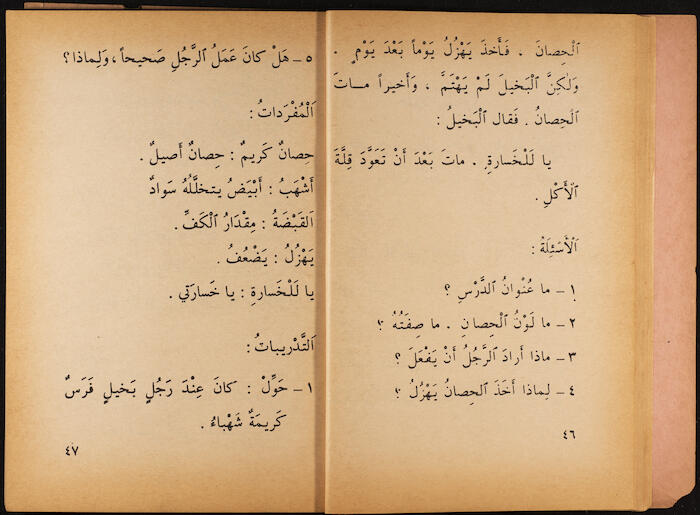 الْحِصانَ . فَأَخذَ يَهْزُلُ يَوْماً بَعْدَ يَوْمٍ .
وَلٰكِنَّ الْبَخيلَ لَمْ يَهْتَمَّ ، وَأَخيراً مـاتَ
الْحِصانُ . فَقال الْبَخيلُ :
يا لَلْخَسارةِ . ماتَ بَعْدَ أَنْ تَعَوَّدَ قِلَّةَ
الْأَكْلِ .
الْأَسْئِلَةُ :
١ - ما عُنْوانُ الدَّرْسِ ؟
٢ - ما لَوْنُ الْحِصانِ . ما صِفَتُهُ ؟
٣ - ماذا أَرادَ الرَّجُلُ أَنْ يَفْعَلَ ؟
٤ - لِماذا أَخَذَ الْحِصانُ يَهْزُلُ ؟
٤٦
٥ - هَلْ كانَ عَمَلُ الرَّجُلِ صَحيحاً ، وَلِماذا ؟
اَلْمُفْرَداتُ :
حِصانٌ كَريمٌ : حِصانٌ أَصيلٌ .
أَشْهَبُ : أَبْيَضُ يتخلَّلُهُ سَوادٌ
اَلقَبْضَةُ : مِقْدَارُ الْكَفِّ .
يَهْزُلُ : يَضْعُفُ .
يا لَلْخَسارةِ : يا خَسارَتي .
اَلتَّدْريباتُ :
١ - حَوِّلْ : كانَ عِنْدَ رَجُلٍ بَخيلٍ فَرَسٌ
كَريمَةٌ شَهْباءُ .
٤٧